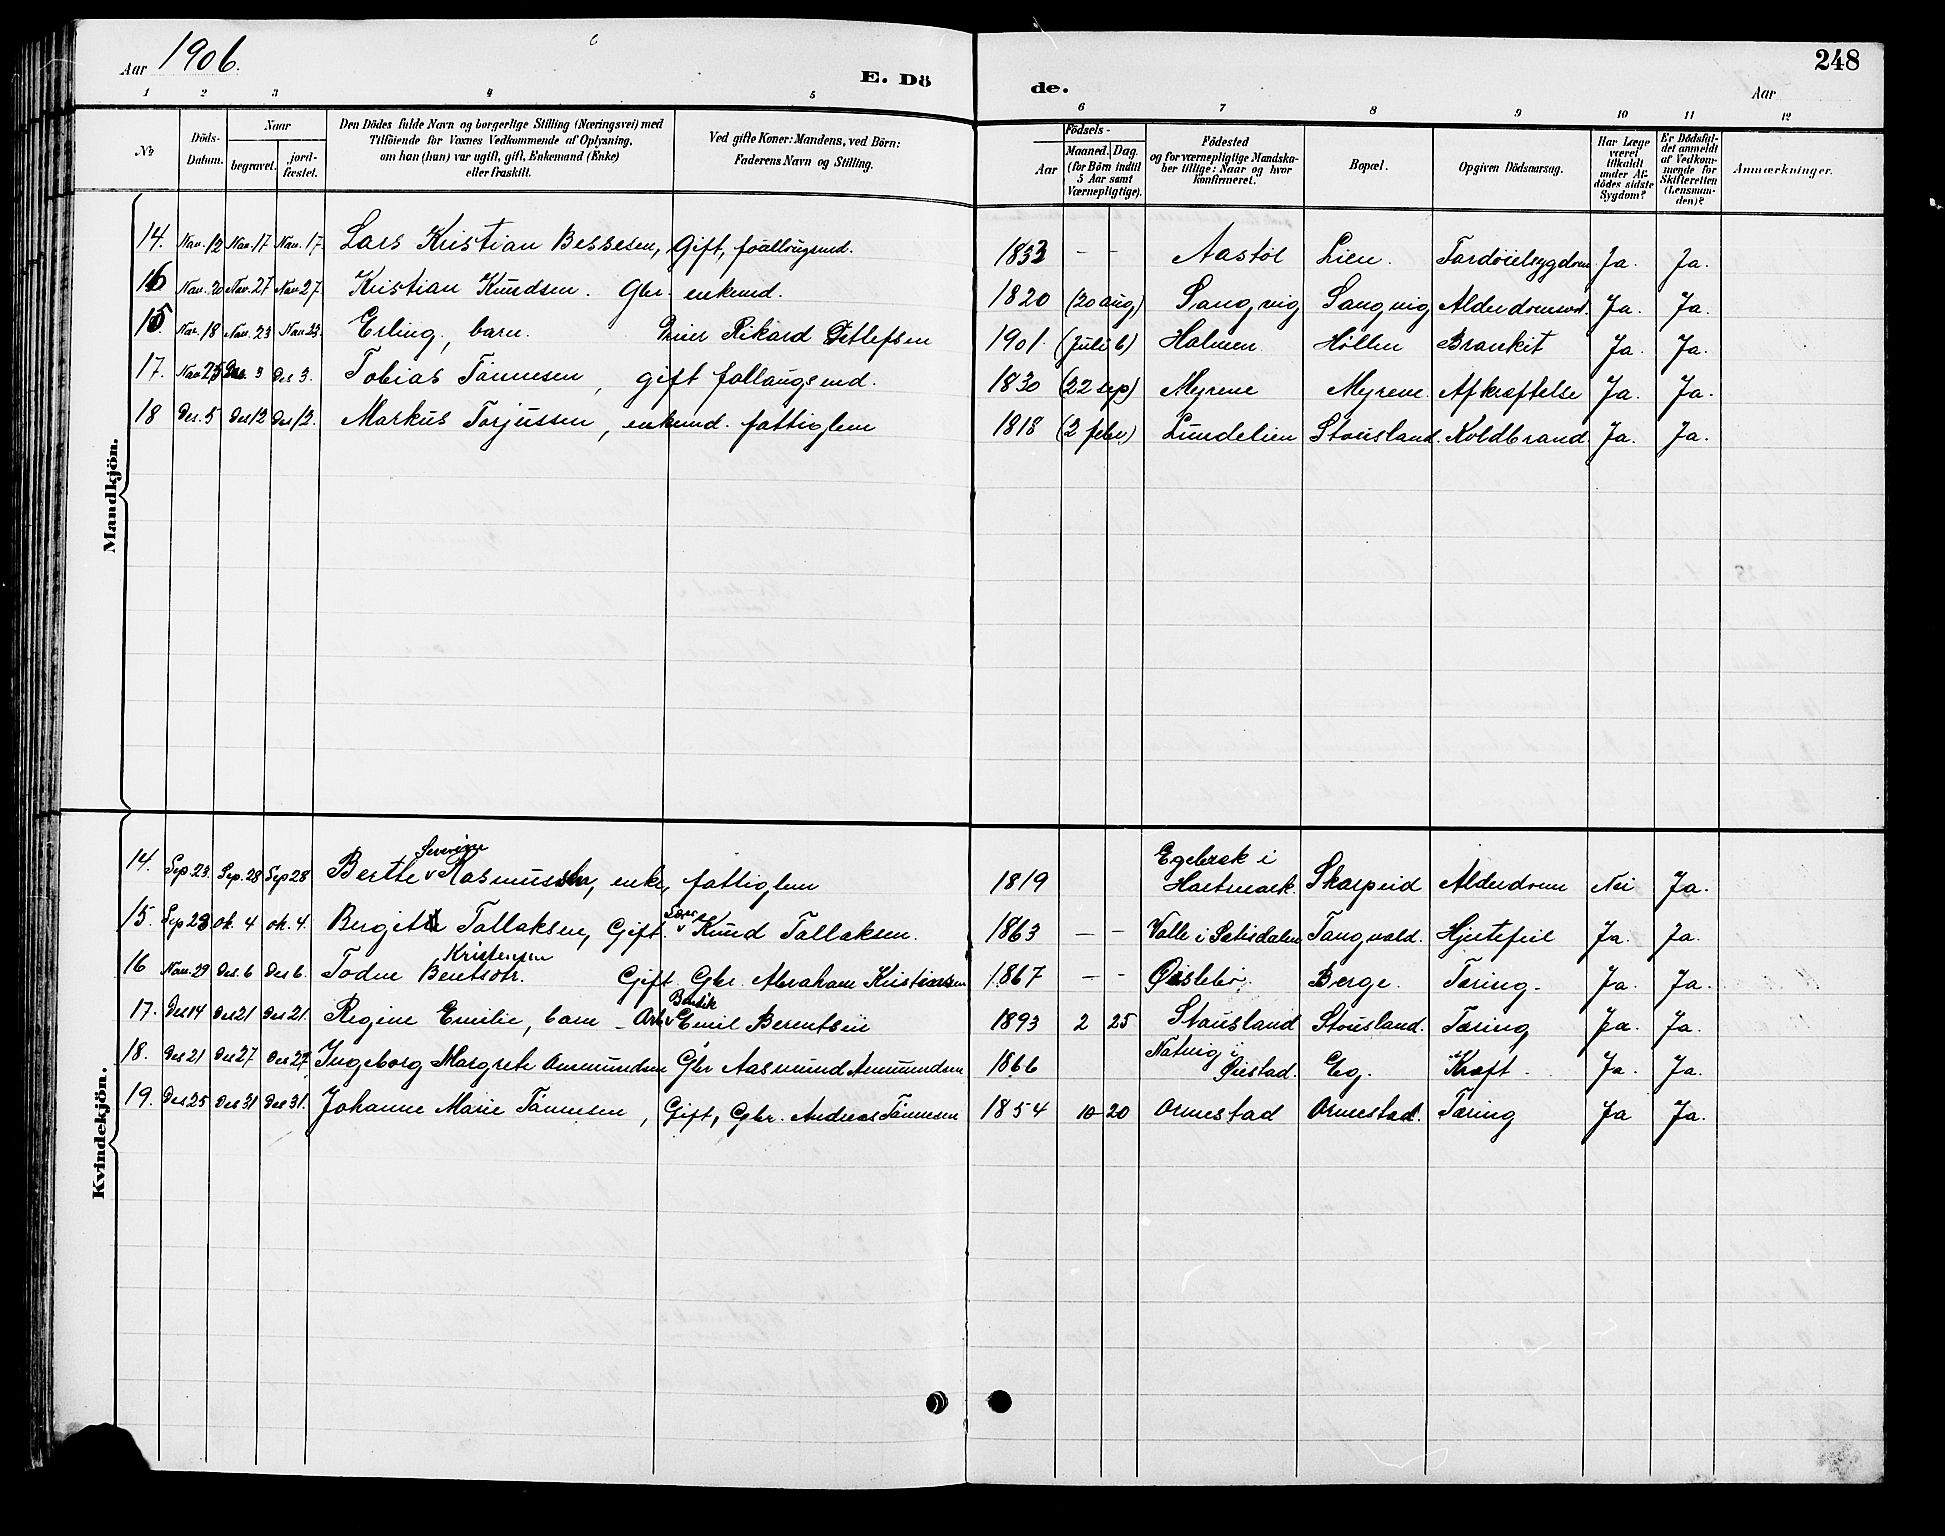 Aar 1906.
E. Dö
de.
248
Aar
1 2 3 4 5 6 7 8 9 10 11 12
No
Döds-
Datum.
Naar
begravet.
jord-
fæstet.
Den Dödes fulde Navn og borgerlige Stilling (Næringsvei) med
Tilföiende for Voxnes Vedkommende af Oplysning,
om han (hun) var ugift, gift, Enkemand (Enke)
eller fraskilt.
Ved gifte Koner: Mandens, ved Börn:
Faderens Navn og Stilling.
Födsels-
Aar
Maaned. Dag.
(for Börn indtil
5 Aar samt
Værnepligtige).
Födested
og for værnepligtige Mandska-
ber tillige: Naar og hvor
konfirmeret.
Bopæl.
Opgiven Dödsaarsag.
Har Læge
været
tilkaldt
under Af-
dödes sidste
Sygdom?
Er Dödsfal-
det anmeldt
af Vedkom-
mende for
Skifteretten
(Lensman-
den)?
Anmærkninger.
Mandkjön.
14. Nov. 12 Nov. 17 Nov. 17. Lars Kristian Bessesen, Gift, 1833 - - Aastöl Lien. Ja. Ja.
16 Nov. 20 Nov. 27 Nov 27. Kristian Knudsen. Gbr. enkemd. 1820 (20 aug) Sangvig Sangvig Ja. Ja.
15 Nov. 18 Nov. 23 Nov 23. Erling, barn. Rikard Detlefsen 1901. (Juli 6) Holmen Höllen Bronkit Ja. Ja.
17. Nov 25 Des. 3 Des 3. Tobias Tönnesen, gift 1830 (22 sep) Myrene Myrene. Afkræftelse Ja. Ja.
18 Des. 5 Des 12 Des 12. Markus Torjussen, enkemd. fattiglem 1818 (2 febr) Lundelien Stousland. Koldbrand. Ja. Ja.
Kvindekjön.
14. Sep. 23. Sep. 28 Sep 28 Berthe Severine Rasmussen, enke, fattiglem 1819 Egebræk i
Hartmark. Skarpeid Alderdom Nei Ja.
15. Sep 28 ok. 4 ok. 4. Bergit Tallaksen, Gift. Knud Tallaksen. 1863 - - Valle i Sætisdalen Tangvald. Hjertefeil Ja. Ja.
Kristensen
16 Nov. 29 Des. 6 Des 6. Todne Bentsdtr. Gift. Gbr. Abraham Kristensen 1867 - - Øislebö. Berge. Tæring. Ja. Ja.
17. Des 14 Des 21 Des 21. Regine Emilie, barn - Arb. Bendik Emil Berentsen 1893 2 25 Stousland Stousland. Tæring Ja. Ja.
18. Des 21 Des 27 Des 27 Ingeborg Margrete Anmundsen Gbr Aasmund Anmundsen 1866 Natvig i
Øiestad. Eg. Kræft. Ja. Ja.
19. Des 25 Des 31 Des 31. Johanne Marie Tönnesen, Gift, Gbr. Andreas Tönnesen 1854 10 20 Ormestad Ormestad. Tæring Ja Ja.